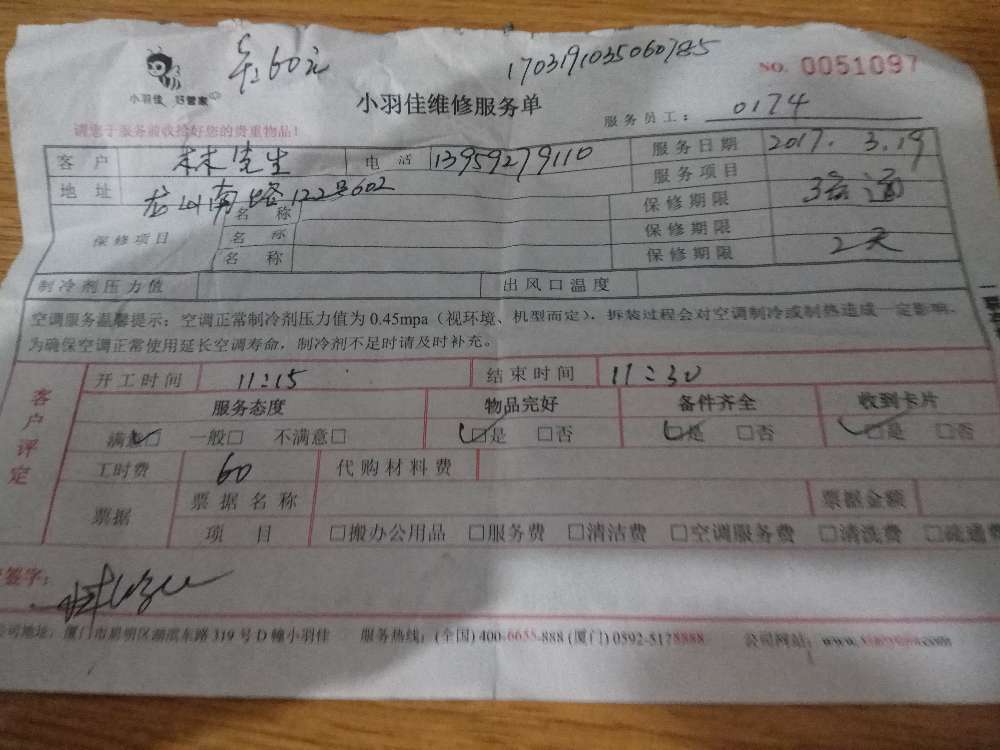 60元 1703191035060785 NO. 0051097
小羽佳 好管家
小羽佳维修服务单
服务员工: 0174
请您于服务前收拾好您的贵重物品!
客户 林先生 电话 13959279110 服务日期 2017. 3.19
地址 龙山南路122号602 服务项目 通
保修项目 名称 保修期限
名称 保修期限
名称 保修期限 2天
制冷剂压力值 出风口温度
空调服务温馨提示: 空调正常制冷剂压力值为 0.45mpa (视环境、机型而定), 拆装过程会对空调制冷或制热造成一定影响,
为确保空调正常使用延长空调寿命, 制冷剂不足时请及时补充。
客户评定
开工时间 11:15 结束时间 11:30
服务态度 物品完好 备件齐全 收到卡片
满意□ 一般□ 不满意□ □是 □否 □是 □否 □是 □否
工时费 60 代购材料费
票据 票据名称 票据金额
项目 □搬办公用品 □服务费 □清洁费 □空调服务费 □清洗费 □疏通费
签字:
公司地址: 厦门市思明区湖滨东路 319 号 D 幢小羽佳 服务热线: (全国) 400-6655-888 (厦门) 0592-5178888 公司网站: www.